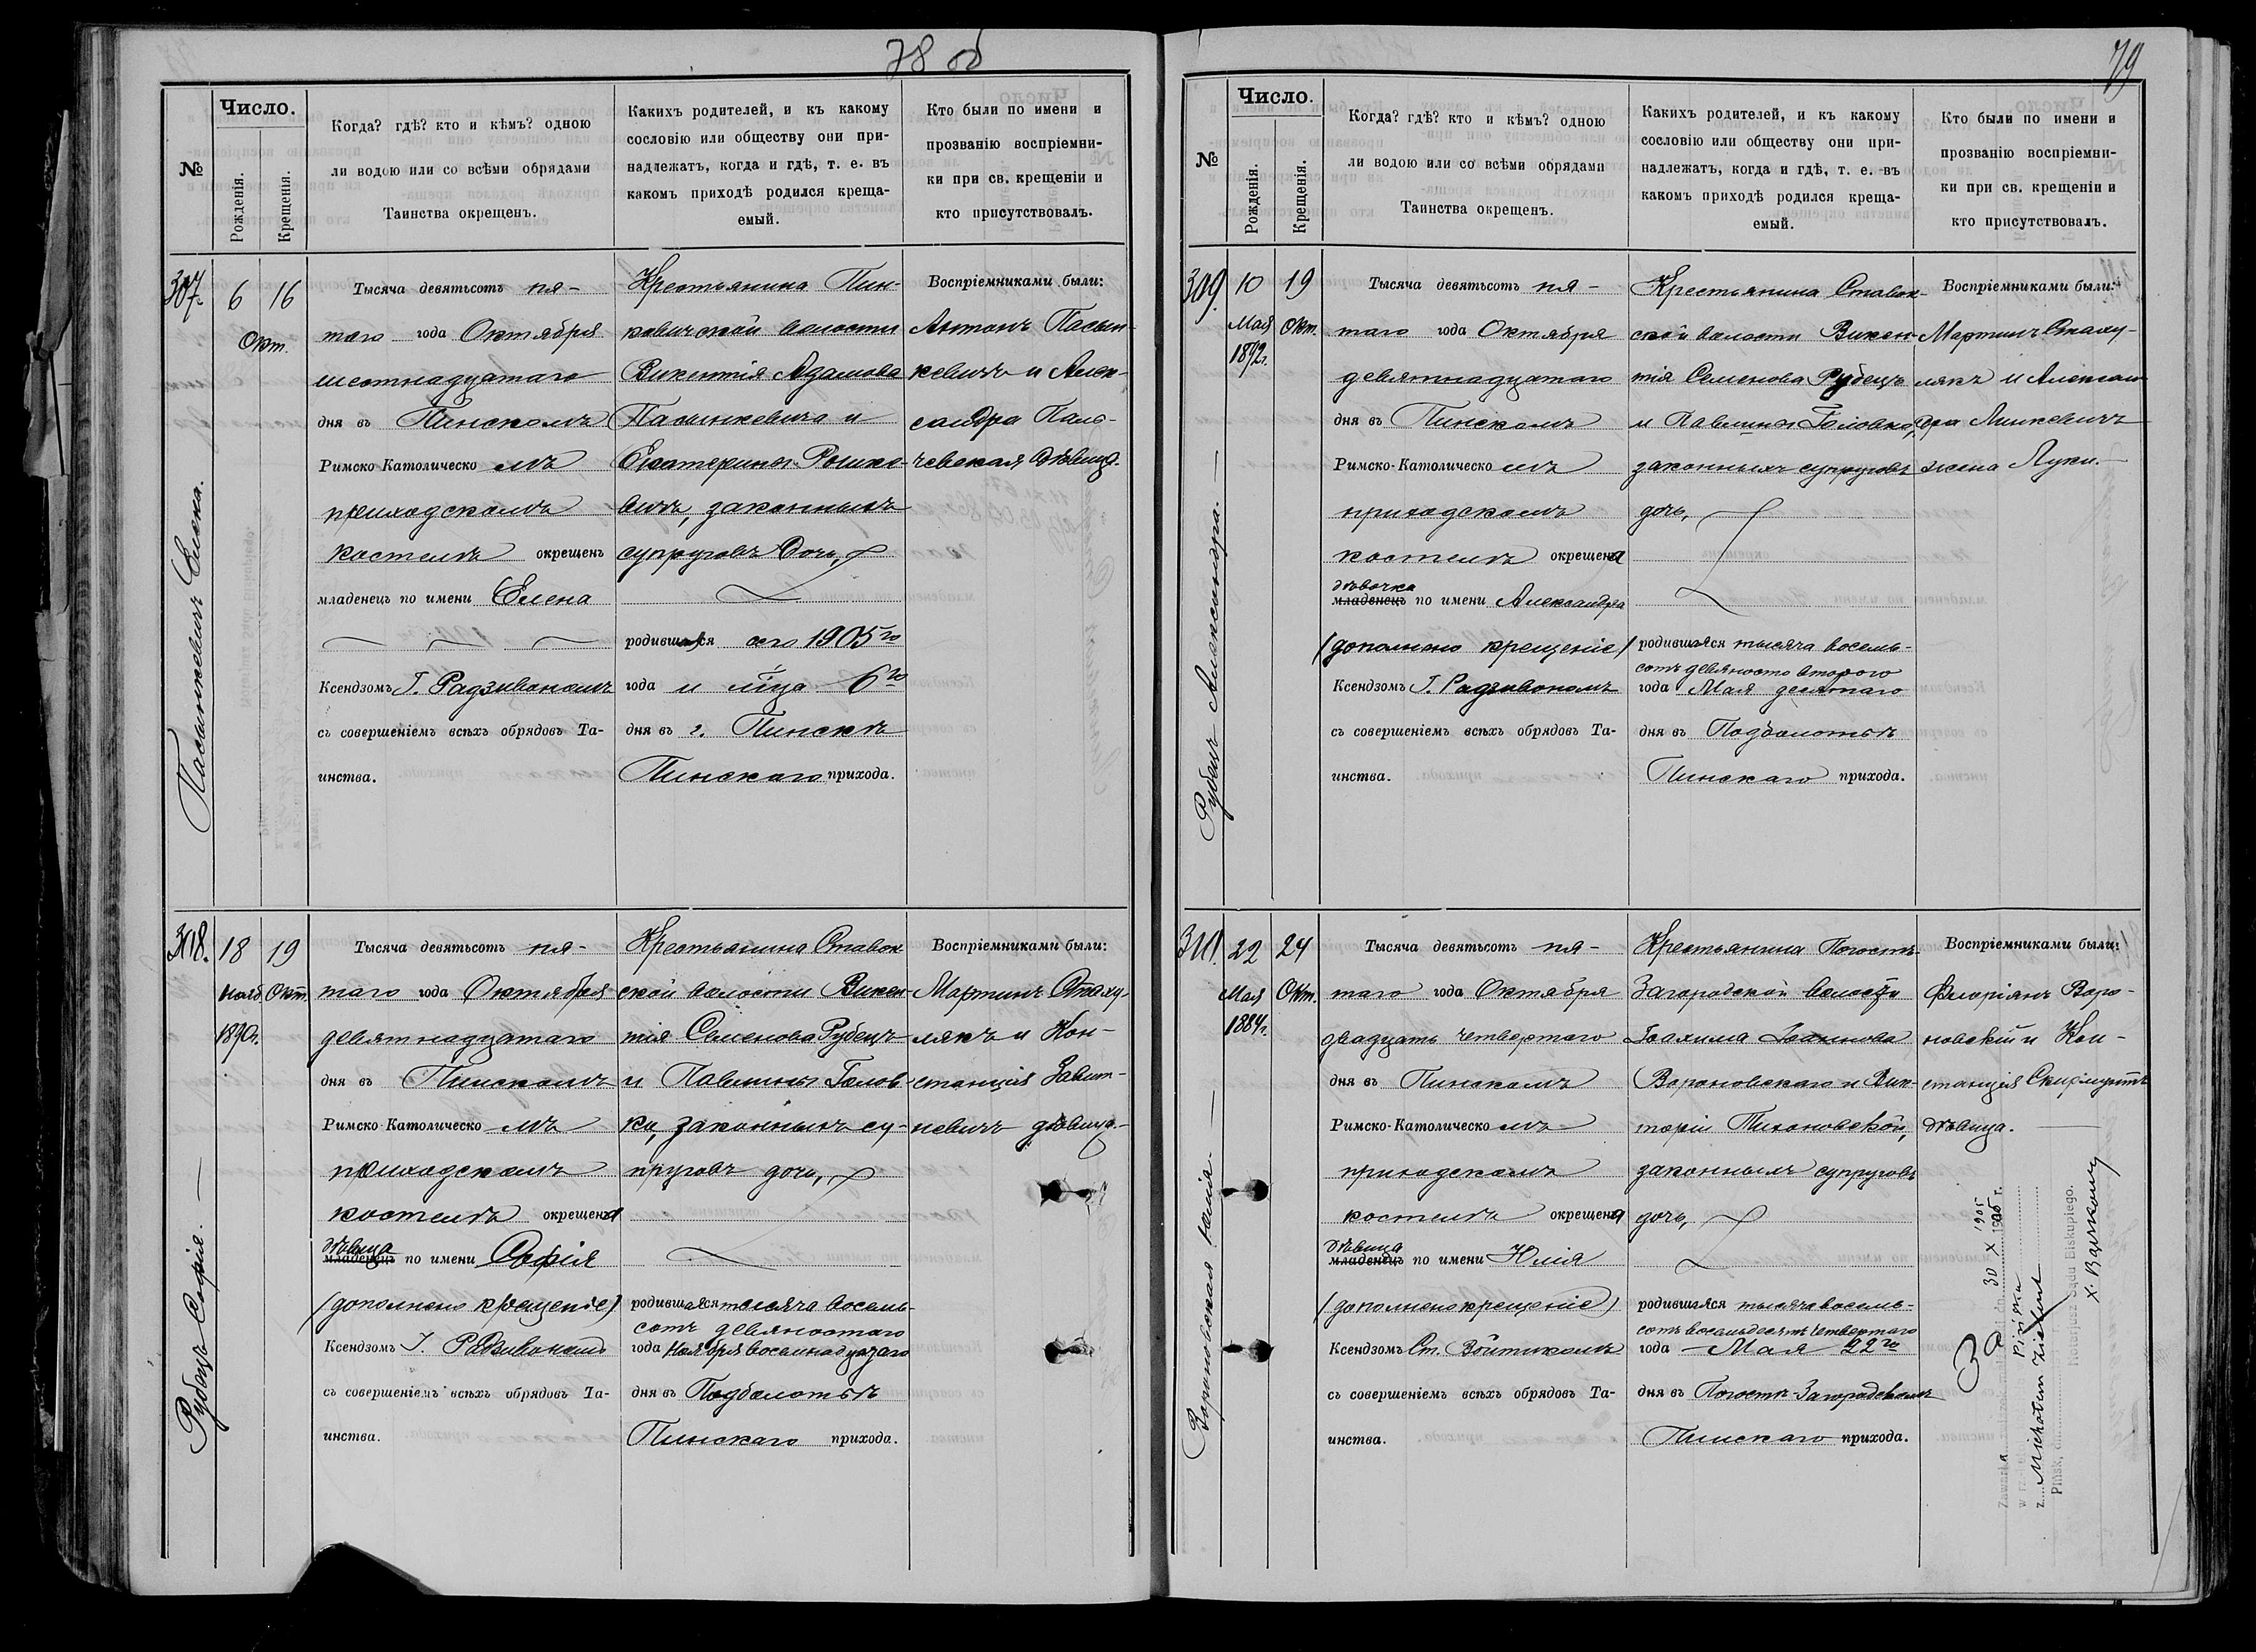 78 об
Число.
№
Рожденія.
Крещенія.
Когда? гдѣ? кто и кѣмъ? одною
ли водою или со всѣми обрядами
Таинства окрещенъ.
Какихъ родителей, и къ какому
сословію или обществу они при-
надлежатъ, когда и гдѣ, т. е. въ
какомъ приходѣ родился креща-
емый.
Кто были по имени и
прозванію воспріемни-
ки при св. крещеніи и
кто присутствовалъ.
307.
Пасынкевичъ Елена.
6 16
Окт.
Тысяча девятьсотъ пя-
таго года Октября
шестнадцатаго
дня въ Пинскомъ
Римско-Католическомъ
приходскомъ
костелѣ окрещенъ
младенецъ по имени Елена
Ксендзомъ І. Радзивономъ
съ совершеніемъ всѣхъ обрядовъ Та-
инства.
Крестьянина Пин-
ковичской волости
Викентія Адамова
Пасынкевича и
Екатерины Рошко-
вичъ, законныхъ
супруговъ дочь,
родившаяся сего 1905го
года и мѣца 6го
дня въ г. Пинскѣ
Пинскаго прихода.
Воспріемниками были:
Антонъ Пасын-
кевичъ и Алек-
сандра Пало-
чевская дѣвица.
308.
Рубецъ Софія.
18 19
Нояб. Окт.
1890г.
Тысяча девятьсотъ пя-
таго года Октября
девятнадцатаго
дня въ Пинскомъ
Римско-Католическомъ
приходскомъ
костелѣ окрещена
дѣвица
младенецъ по имени Софія
(дополнено крещеніе)
Ксендзомъ І. Радзивономъ
съ совершеніемъ всѣхъ обрядовъ Та-
инства.
Крестьянина Ставок-
ской волости Викен-
тія Семенова Рубецъ
и Павлины Голов-
ко, законныхъ су-
пруговъ дочь,
родившаяся тысяча восемь-
сотъ девяностаго
года Ноября восемнадцатаго
дня въ Подболотьѣ
Пинскаго прихода.
Воспріемниками были:
Мартинъ Стаху-
лякъ и Кон-
станція Завит-
невичъ дѣвица.
79
Число.
№
Рожденія.
Крещенія.
Когда? гдѣ? кто и кѣмъ? одною
ли водою или со всѣми обрядами
Таинства окрещенъ.
Какихъ родителей, и къ какому
сословію или обществу они при-
надлежатъ, когда и гдѣ, т. е. въ
какомъ приходѣ родился креща-
емый.
Кто были по имени и
прозванію воспріемни-
ки при св. крещеніи и
кто присутствовалъ.
309.
Рубецъ Александра.
10 19
Мая Окт.
1892г.
Тысяча девятьсотъ пя-
таго года Октября
девятнадцатаго
дня въ Пинскомъ
Римско-Католическомъ
приходскомъ
костелѣ окрещена
дѣвочка
младенецъ по имени Александра
(дополнено крещеніе)
Ксендзомъ І. Радзивономъ
съ совершеніемъ всѣхъ обрядовъ Та-
инства.
Крестьянина Ставок-
ской волости Викен-
тія Семенова Рубецъ
и Павлины Головко,
законныхъ супруговъ
дочь,
родившаяся тысяча восемь-
сотъ девяносто второго
года Мая десятаго
дня въ Подболотьѣ
Пинскаго прихода.
Воспріемниками были:
Мартинъ Стаху-
лякъ и Алексан-
дра Линкевичъ
жена Луки.
310.
Вороновская Юлія.
22 24
Мая Окт.
1884г.
Тысяча девятьсотъ пя-
таго года Октября
двадцать четвертаго
дня въ Пинскомъ
Римско-Католическомъ
приходскомъ
костелѣ окрещена
дѣвица
младенецъ по имени Юлія
(дополнено крещеніе)
Ксендзомъ Ст. Войтикомъ
съ совершеніемъ всѣхъ обрядовъ Та-
инства.
Крестьянина Погостъ-
Загородской волости
Іоахима Іоаннова
Вороновскаго и Вик-
торіи Тихоновской,
законныхъ супруговъ
дочь,
родившаяся тысяча восемь-
сотъ восемьдесятъ четвертаго
года Мая 22го
дня въ Погостѣ-Загородскомъ
Пинскаго прихода.
Воспріемниками были:
Флоріянъ Воро-
новскій и Кон-
станція Скирмунтъ
дѣвица.
30 X 1905 r.
z Michałem
Pińsk, dn.
Notarjusz Sądu Biskupiego.